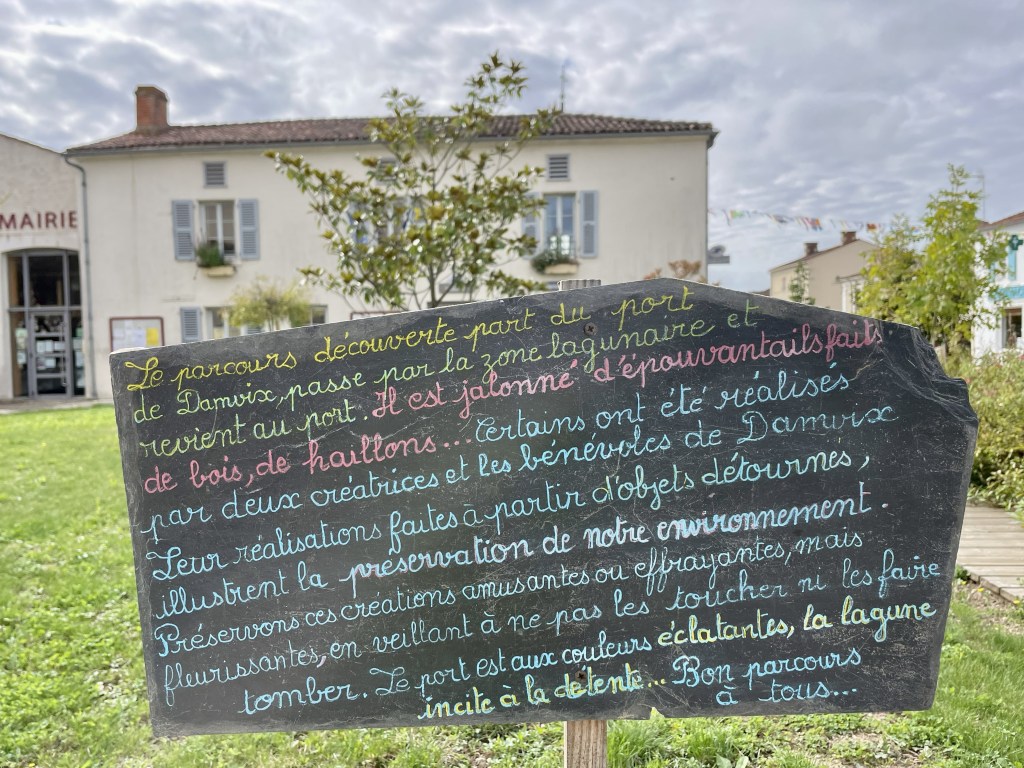 MAIRIE
Le parcours découverte part du port
de Damvix, passe par la zone lagunaire et
revient au port. Il est jalonné d'épouvantails faits
de bois, de haillons... Certains ont été réalisés
par deux créatrices et les bénévoles de Damvix
Leur réalisations faites à partir d'objets détournés,
illustrent la préservation de notre environnement.
Préservons ces créations amusantes ou effrayantes, mais
fleurissantes, en veillant à ne pas les toucher ni les faire
tomber. Le port est aux couleurs éclatantes, la lagune
incite à la détente... Bon parcours
à tous...